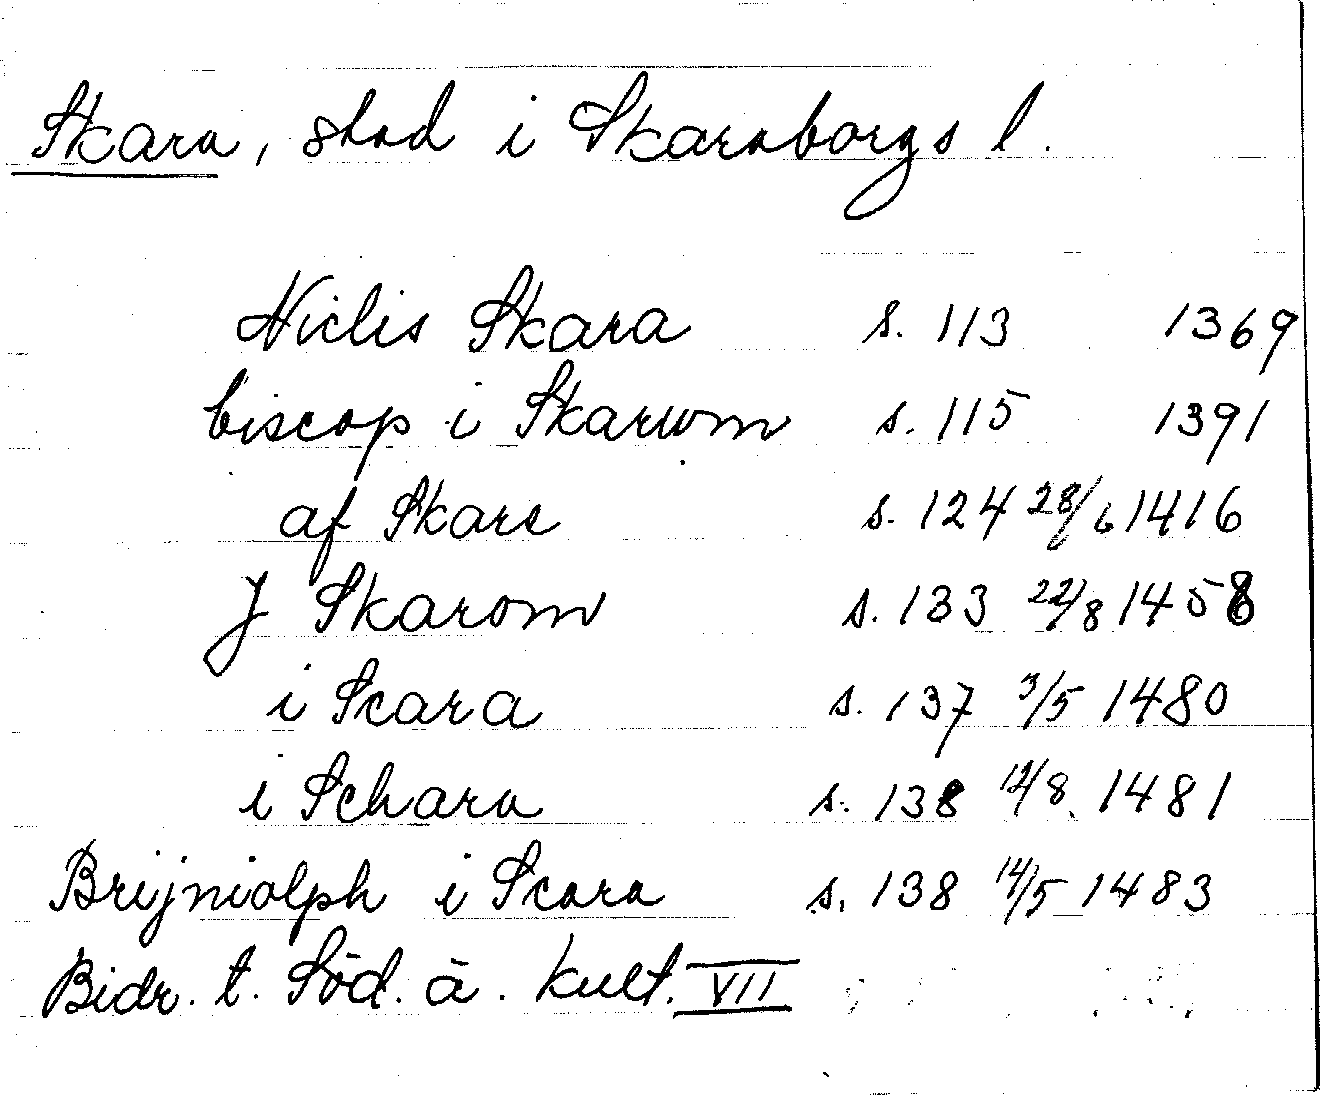 Skara, stad i Skaraborgs l.
Niclis Skara s. 113 1369
biscop i Skarwm s. 115 1391
af Skare s. 124 28/6 1416
J Skarom s. 133 22/8 1458
i Scara s. 137 3/5 1480
i Schara s. 138 12/8. 1481
Brijniolph i Scara s. 138 14/5 1483
Bidr. t. Söd. ä. kult. VII